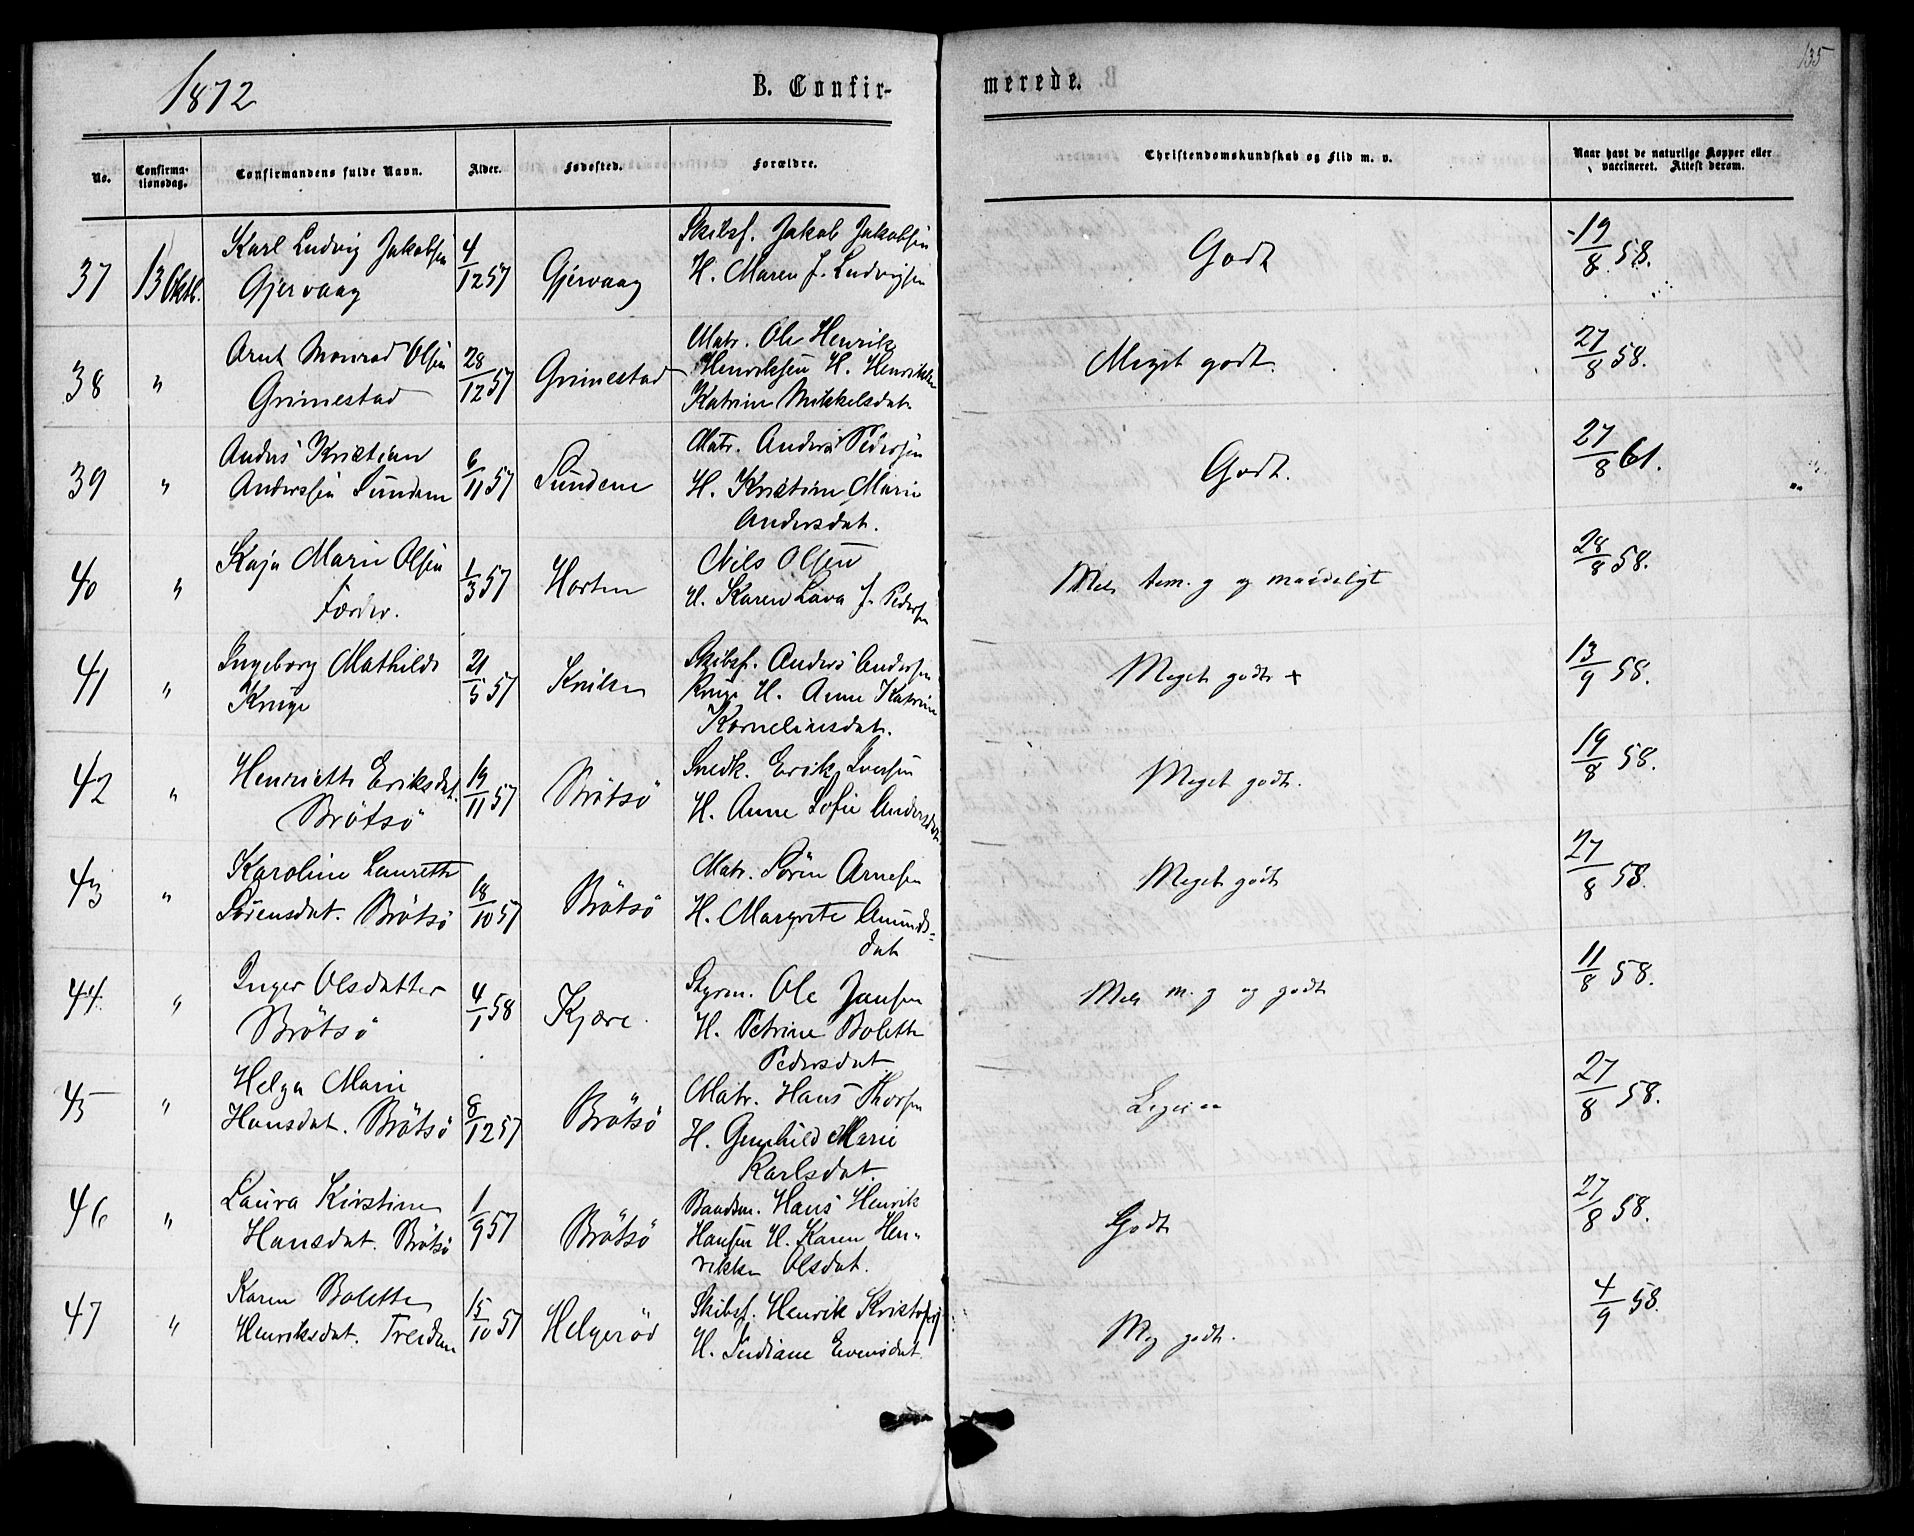 135
1872
B. Confir-
merede.
No.
Confirma-
tionsdag.
Confirmandens fulde Navn.
Alder.
Fødested.
Forældre.
Christendomskundskab og Flid m. v.
Naar havt de naturlige Kopper eller
vaccineret. Attest derom.
37 13 Oktb. Karl Ludvig Jakobsen 4/12 57 Gjervaag Skibsf. Jakob Jakobsen Godt 19/8 58.
Gjervaag H. Maren f. Ludvigsen
38 " Arnt Monrad Olsen 28/12 57 Grimestad Matr. Ole Henrik Meget godt. 27/8 58.
Grimestad Henriksen H. Henrikke
Katrine Mikkelsdat.
39 " Anders Kristian 6/11 57 Sundene Matr. Anders Pedersen Godt. 27/8 61.
Anderssen Sundene H. Kristine Marie
Andersdat.
40 " Kaja Marie Olsen 1/3 57 Horten Nils Olsen Mel. tem. g og maadeligt 28/8 58.
Færder. H. Karen Lava f. Pedersen
41 " Ingeborg Mathilde 21/5 57 Kniken Skibsf. Anders Andersen Meget godt + 13/9 58.
Kruge Kruge H. Anne Katrine
Korneliusdat.
42 " Henriette Eriksdat. 19/11 57 Brötsö Snedk. Erik Iversen Meget godt. 19/8 58.
Brötsö H. Anne Sofie Andersdat
43 " Karoline Laurette 18/10 57 Brötsö Matr. Sören Arnesen Meget godt 27/8 58.
Sörensdat. Brötsö H. Margrete Amunds=
dat
44. " Inger Olsdatter 4/1 58 Kjære. Styrm. Ole Jansen Mel. m. g og godt 11/8 58.
Brötsö H. Petrine Bolette
Pedersdat.
45 " Helga Marie 8/12 57 Brötsö Matr. Hans Thorsen 27/8 58.
Hansdat. Brötsö H. Gunhild Marie
Karlsdat.
46 " Laura Kirstine 1/9 57 Brötsö Baadsm. Hans Henrik Godt 27/8 58.
Hansdat. Brötsö Hansen H. Karen Hen-
rikke Olsdat.
47 " Karen Bolette 15/10 57 Helgeröd Skibsf. Henrik Kristofers. Meg godt. 4/9 58.
Henriksdat. Treidene H. Indiane Evensdat.